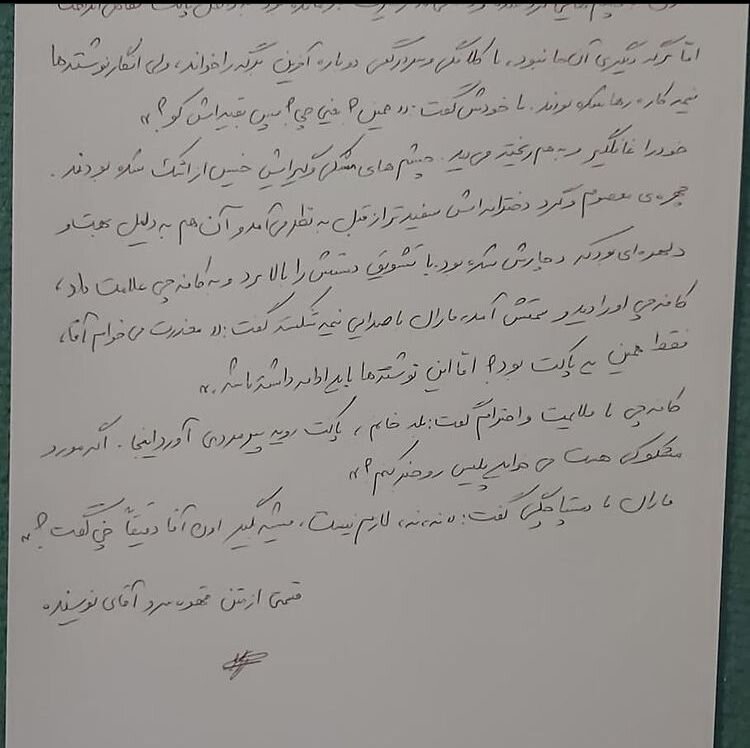 اما برگه دیگری آن‌جا نبود. با کلافگی و سردرگمی دوباره آخرین برگه را خواند، ولی انگار نوشته‌ها
نیمه کاره رها شده بودند. با خودش گفت: «همین؟ یعنی چی؟ پس بقیه‌اش کو؟»
خود را غافلگیر و به هم ریخته می‌دید. چشم‌های مشکی و گیرایش خیس از اشک شده بودند.
چهره‌ی معصوم و گرد دخترانه‌اش سفیدتر از قبل به نظر می‌آمد و آن هم به دلیل بهت و
دلهره‌ای بود که دچارش شده بود. با تشویق دستش را بالا برد و به کافه‌چی علامت داد،
کافه‌چی او را دید و سمتش آمد. ماران با صدایی نیمه شکسته گفت: «معذرت می‌خوام آقا،
فقط همین یه پاکت بود؟ آخه این نوشته‌ها باید ادامه داشته باشه.»
کافه‌چی با ملایمت و احترام گفت: بله خانم، پاکت رو یه پیرمردی آورد اینجا. اگه مورد
مشکوکی هست می‌خواید پلیس رو خبر کنم؟»
ماران با دستپاچگی گفت: «نه، نه، لازم نیست، میشه بگید اون آقا دقیقاً چی گفت؟»
قسمتی از متن قهوه سرد آقای نویسنده